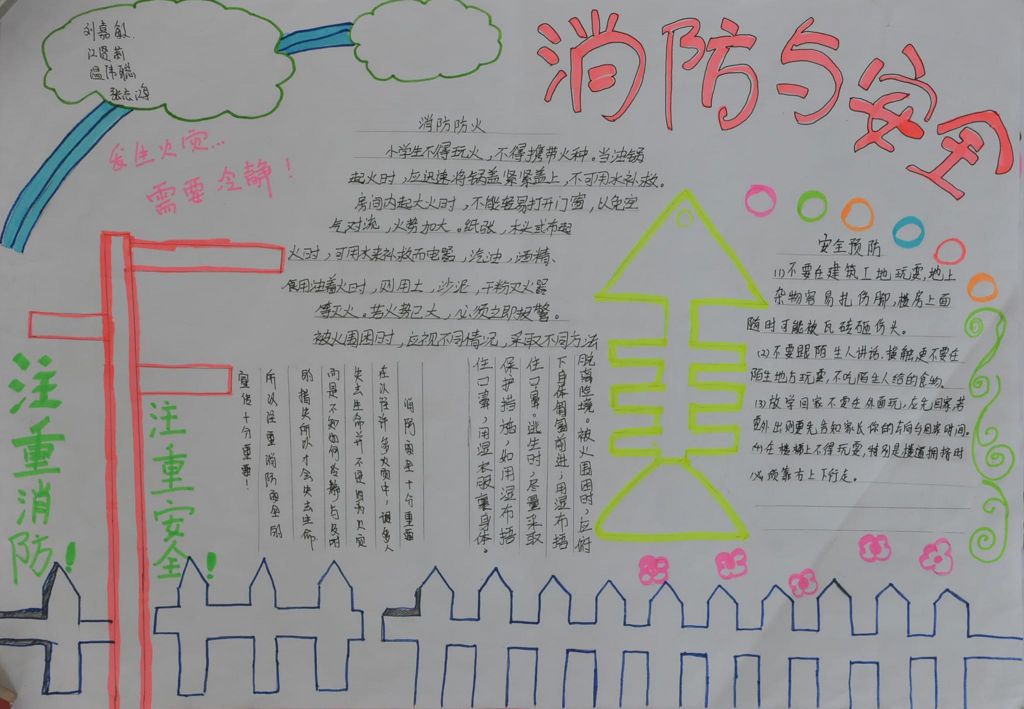 消防与安全
刘嘉敏
江贤莉
温伟聪
张志鸿
发生火灾...
需要冷静!
消防防火
小学生不得玩火,不得携带火种。当油锅
起火时,应迅速将锅盖紧紧盖上,不可用水补救。
房间内起大火时,不能轻易打开门窗,以免空
气对流,火势加大。纸张,木头或布起
火时,可用水来补救而电器,汽油,酒精、
食用油着火时,则用土,沙泥,干粉灭火器
等灭火。若火势已大,必须立即报警。
被火围困时,应视不同情况,采取不同方法
脱离险境。被火围困时,应俯
下身体匍匐前进,用湿布捂
住口鼻。逃生时,尽量采取
保护措施,如用湿布捂
住口鼻,用湿衣服裹身体。
消防安全十分重要
在以往许多火灾中,很多人
失去生命并不是因为火灾
而是不知如何冷静与及时
的措失所以才会失去生命
所以注重消防安全的
宣传十分重要!
安全预防
(1)不要在建筑工地玩耍,地上
杂物容易扎伤脚,楼房上面
随时可能被瓦砖砸伤头。
(2)不要跟陌生人讲话、接触更不要在
陌生地占玩耍,不吃陌生人给的食物。
(3)放学回家不要在外面玩,应先回家,若
要外出则要先告知家长你的去向与回家时间。
(4)在楼梯上不得玩耍,特别是楼道拥挤时
必须靠右上下行走。
注重消防!
注重安全!